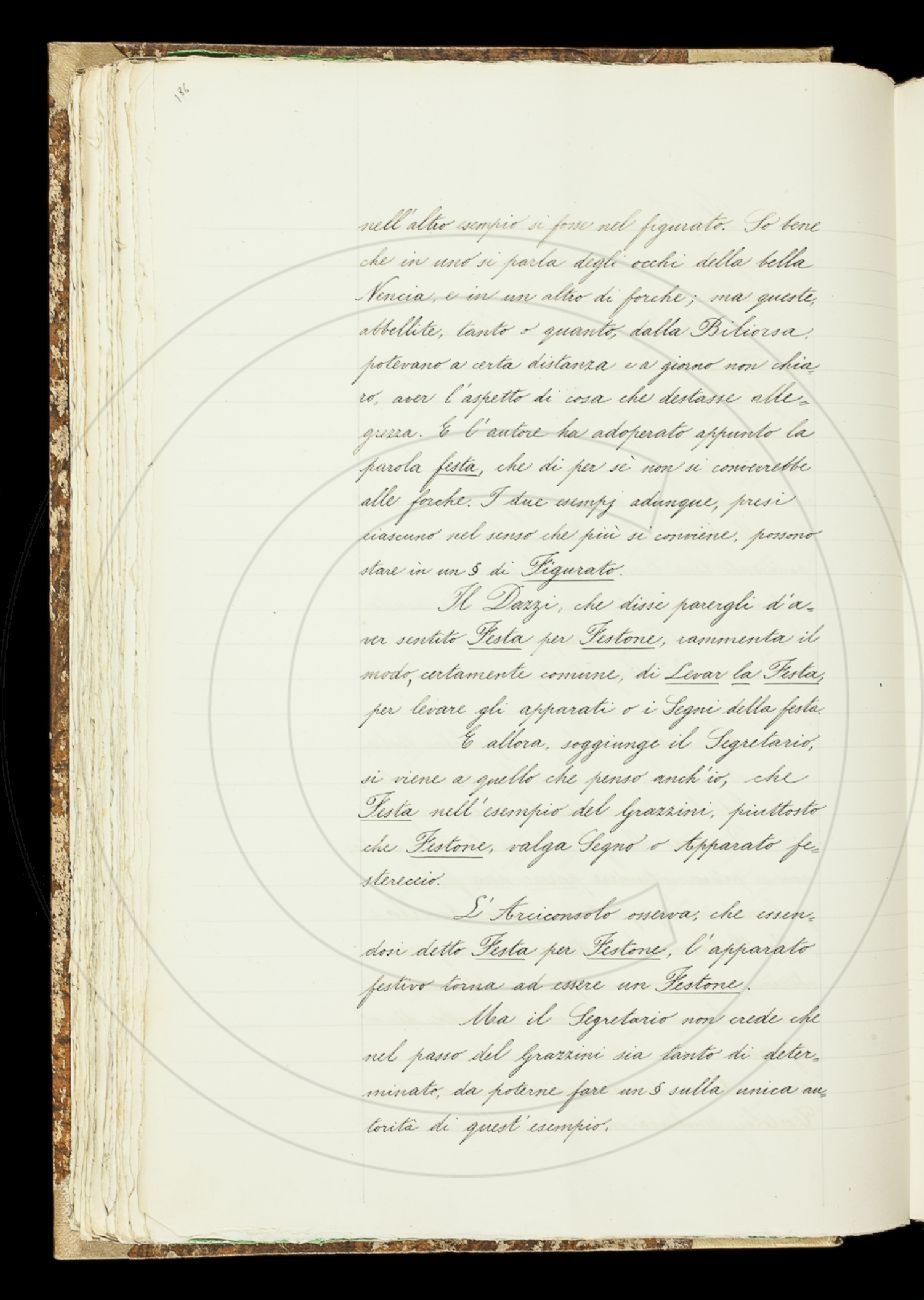 136
nell'altro esempio si fosse nel figurato. So bene
che in uno si parla degli occhi della bella
Nencia, e in un altro di forche; ma queste,
abbellite, tanto o quanto, dalla Biliorsa,
potevano a certa distanza e a giorno non chia-
ro, aver l'aspetto di cosa che destasse alle-
grezza. E l'autore ha adoperato appunto la
parola festa, che di per sè non si converrebbe
alle forche. I due esempj adunque, presi
ciascuno nel senso che più si conviene, possono
stare in un § di Figurato.
Il Dazzi, che disse parergli d'a-
ver sentito Festa per Festone, rammenta il
modo, certamente comune, di Levar la Festa,
per levare gli apparati o i Segni della festa.
E allora, soggiunge il Segretario,
si viene a quello che penso anch'io, che
Festa nell'esempio del Grazzini, piuttosto
che Festone, valga Segno o Apparato fe-
stereccio.
L'Arciconsolo osserva, che essen-
dosi detto Festa per Festone, l'apparato
festivo torna ad essere un Festone.
Ma il Segretario non crede che
nel passo del Grazzini sia tanto di deter-
minato, da poterne fare un § sulla unica au-
torità di quest'esempio.